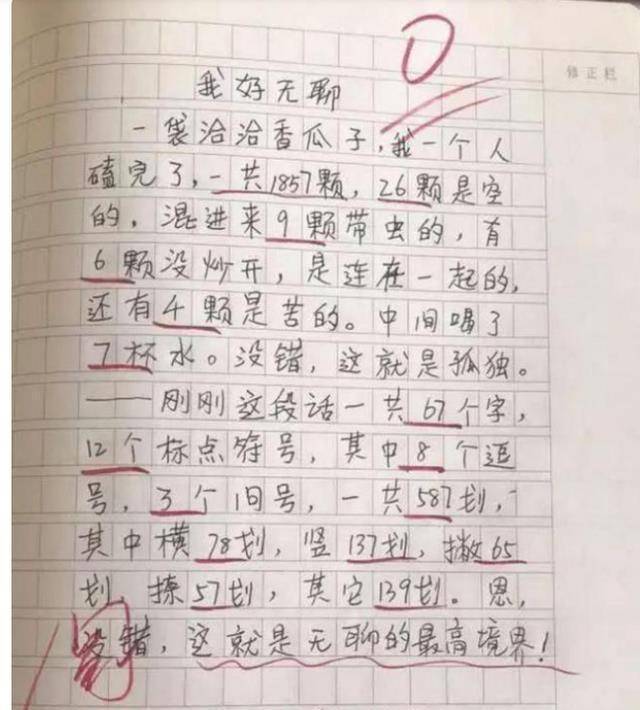 0
修正栏
我好无聊
一袋洽洽香瓜子，我一个人
磕完了，一共1857颗，26颗是空
的，混进来9颗带虫的，有
6颗没炒开，是连在一起的，
还有4颗是苦的。中间喝了
7杯水。没错，这就是孤独。
——刚刚这段话一共67个字，
12个标点符号，其中8个逗
号，3个旧号，一共587划，
其中横78划，竖137划，撇65
划，捺57划，其它139划。恩，
没错，这就是无聊的最高境界！